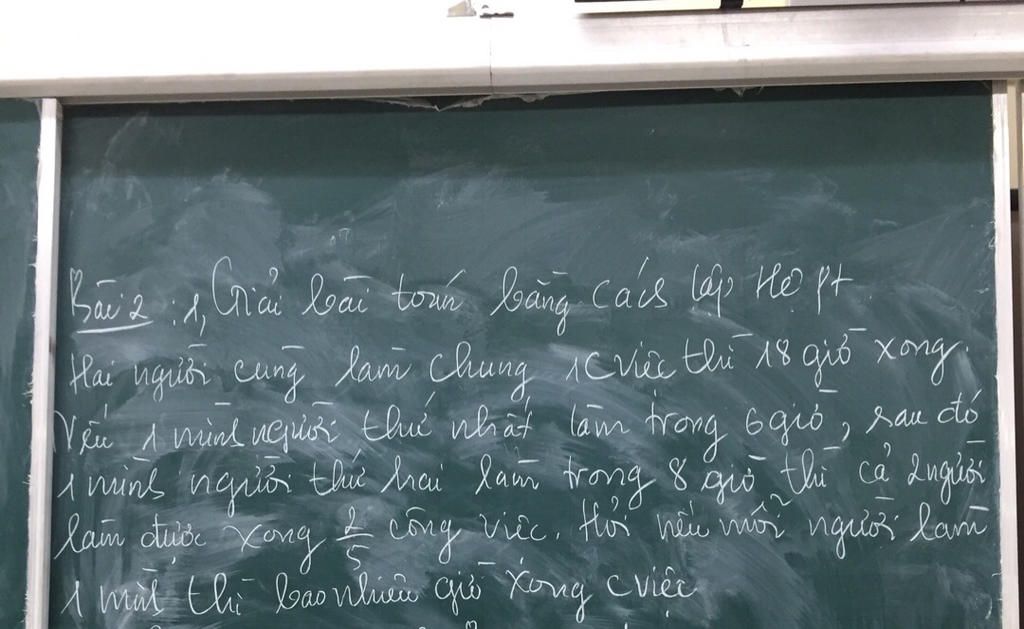 Bài 2 : 1, Giải bài toán bằng cách lập Hệ Pt.
Hai người cùng làm chung 1 cviệc thì 18 giờ xong.
Nếu 1 mình người thứ nhất làm trong 6 giờ, sau đó
1 mình người thứ hai làm trong 8 giờ thì cả 2 người
làm được xong 2/5 công việc. Hỏi nếu mỗi người làm
1 mình thì bao nhiêu giờ xong cviệc